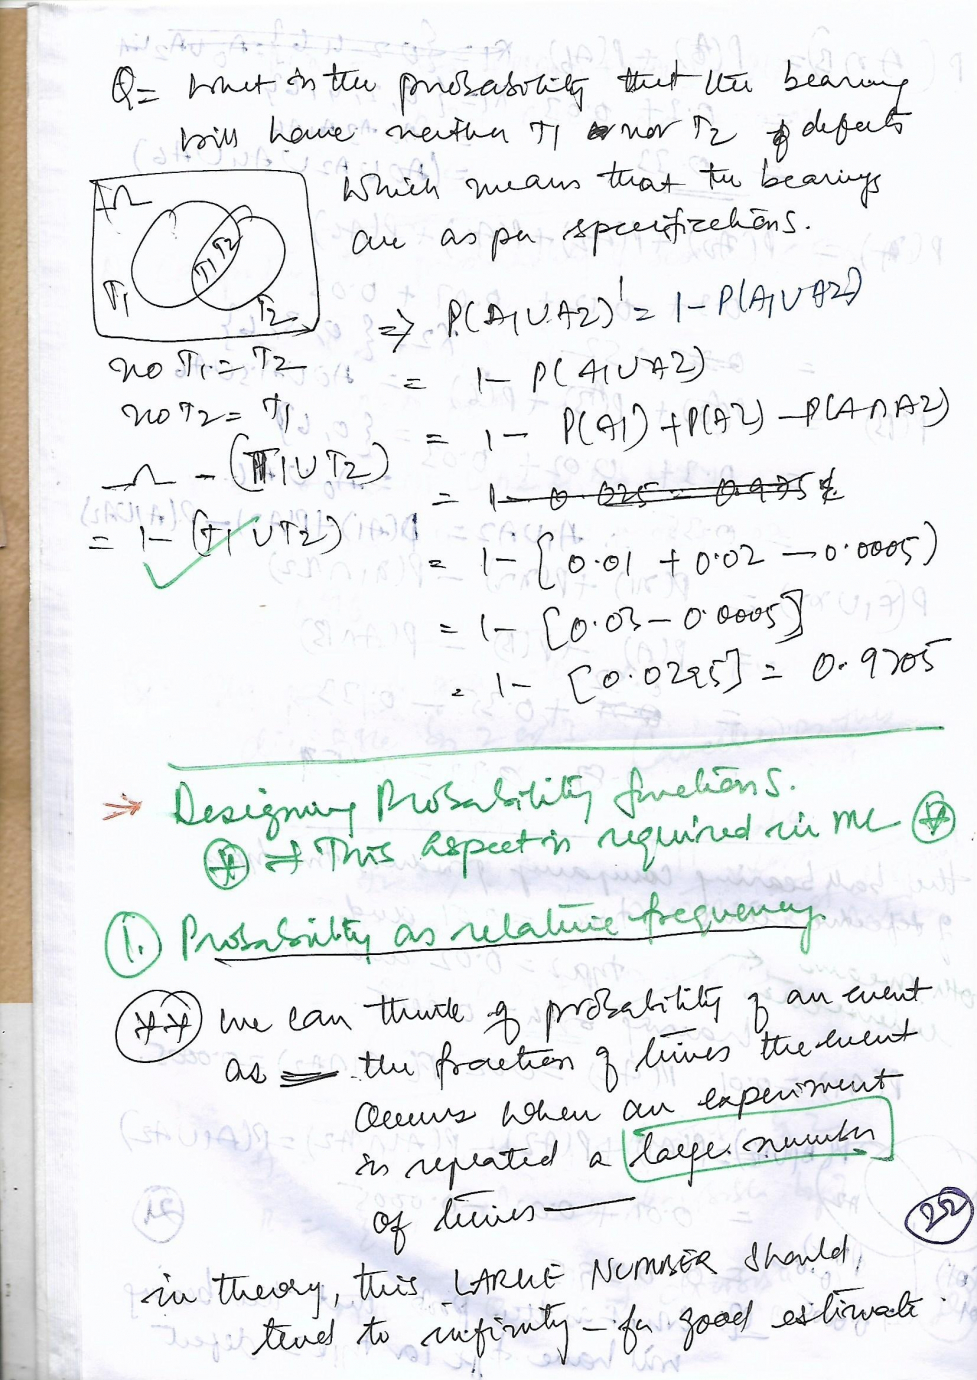 Q= What is the probability that the bearing
will have neither T1 nor T2 defects
which means that the bearings
are as per specifications.
Ω
T1
T1 T2
T2
=> P(A1∪A2)' = 1-P(A1∪A2)
no T1 = T2
= 1- P(A1∪A2)
no T2 = T1
= 1- P(A1)+P(A2)-P(A∩A2)
Ω - (T1∪T2)
= 1-0.025 = 0.975
= 1- (T1∪T2)
= 1-[0.01 + 0.02 -0.0005)
= 1- [0.03-0.0005]
= 1- [0.0295] = 0.9705
Designing Probability functions.
* => This aspect is required in ML *
1. Probability as relative frequency.
** we can think of probability of an event
as the fraction of times the event
occurs when an experiment
is repeated a large number
of times
22
in theory, this LARGE NUMBER should,
tend to infinity - for good estimate.